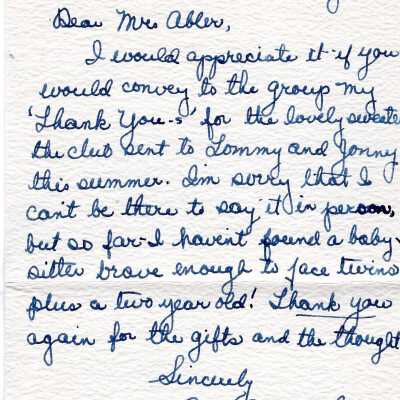 Dear Mrs Abler,
I would appreciate it if you
would convey to the group my
'Thank You-s' for the lovely sweate
the club sent to Tommy and Jonny
this summer. I'm sorry that I
can't be there to say it in person,
but so far I haven't found a baby-
sitter brave enough to face twins
plus a two year old! Thank you
again for the gifts and the thought
Sincerely